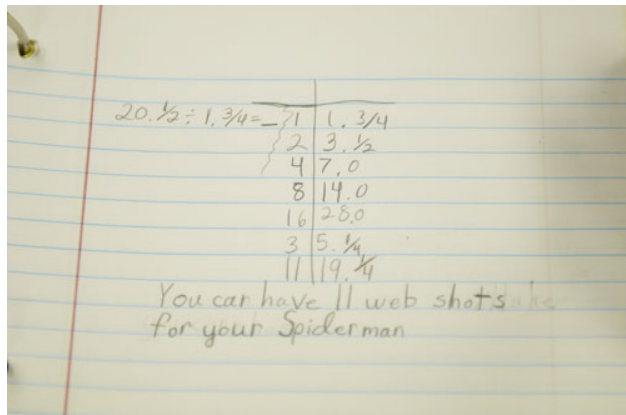 20.½ ÷ 1.¾ = _ 1 | 1.3/4
2 | 3.½
4 | 7.0
8 | 14.0
16 | 28.0
3 | 5.¼
11 | 19.¼
You can have 11 web shots
for your Spiderman